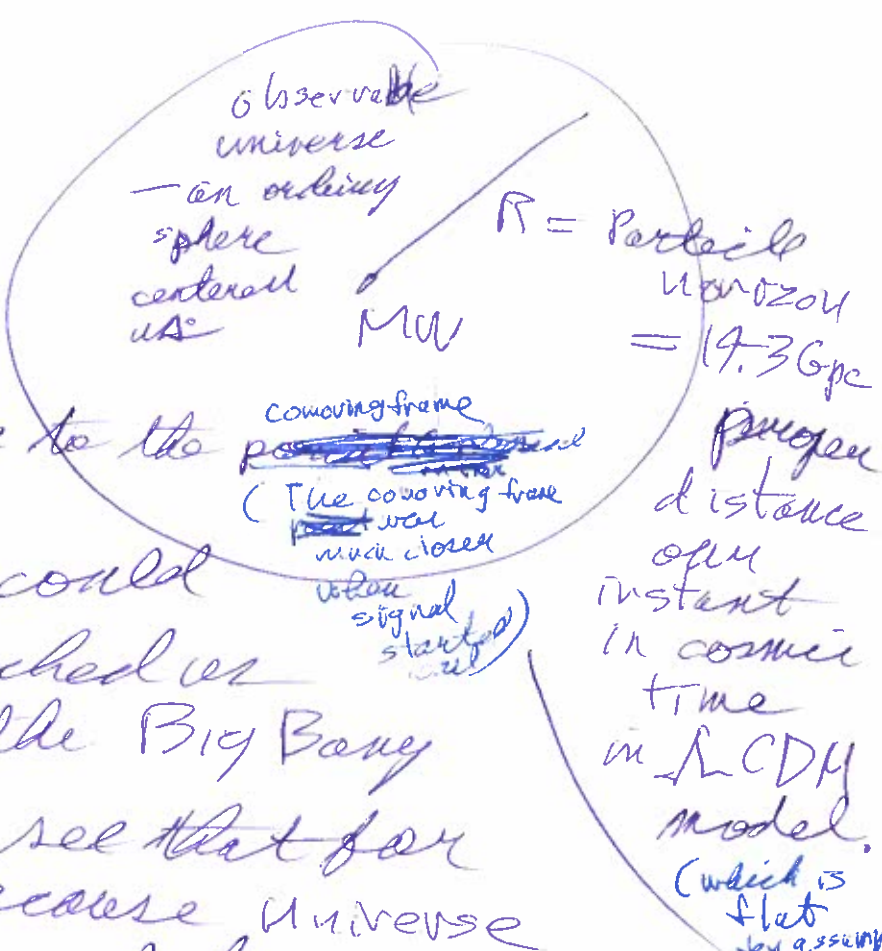 observable
universe
— an ordinary
sphere
centered
us
MW
R = Particle
horizon
= 14.3 Gpc
proper
distance
our
instant
in cosmic
time
in ΛCDM
model.
(which is
flat
by
to the
comoving frame
(The comoving frame
was
much closer
when
signal
started
out)
could
ched us
the Big Bang
see that far
cause Universe